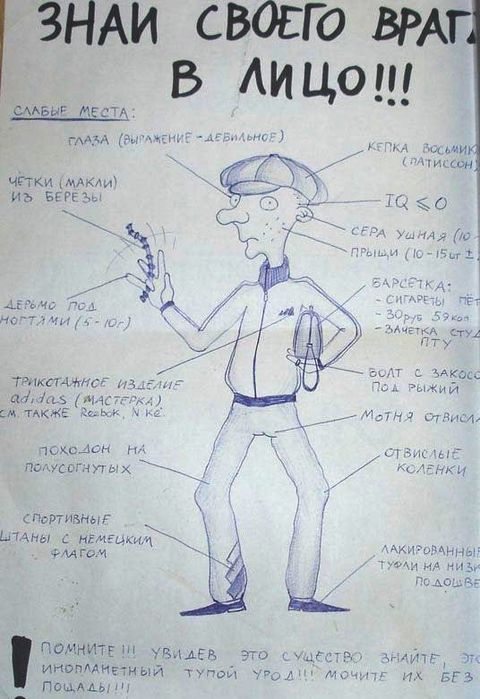 ЗНАЙ СВОЕГО ВРАГА
В ЛИЦО!!!
СЛАБЫЕ МЕСТА:
ГЛАЗА (ВЫРАЖЕНИЕ - ДЕБИЛЬНОЕ)
КЕПКА ВОСЬМИК
(ПАТИССОН)
ЧЁТКИ (МАКЛИ)
ИЗ БЕРЁЗЫ
IQ ⩽ 0
СЕРА УШНАЯ (10-
ПРЫЩИ (10-15шт ±
БАРСЕТКА:
- СИГАРЕТЫ ПЁТ
- 30руб 59коп
- ЗАЧЕТКА СТУД
ПТУ
ДЕРЬМО ПОД
НОГТЯМИ (5-10г)
ВОЛТ С ЗАКОСО
ПОД РЫЖИЙ
ТРИКОТАЖНОЕ ИЗДЕЛИЕ
adidas (МАСТЕРКА)
СМ. ТАКЖЕ Reebok, N ke.
МОТНЯ ОТВИСЛА
ПОХОДОН НА
ПОЛУСОГНУТЫХ
ОТВИСЛЫЕ
КОЛЕНКИ
СПОРТИВНЫЕ
ШТАНЫ С НЕМЕЦКИМ
ФЛАГОМ
ЛАКИРОВАННЫЕ
ТУФЛИ НА НИЗК
ПОДОШВЕ
! ПОМНИТЕ!!! УВИДЕВ ЭТО СУЩЕСТВО ЗНАЙТЕ, ЭТО
ИНОПЛАНЕТНЫЙ ТУПОЙ УРОД!!! МОЧИТЕ ИХ БЕЗ
ПОЩАДЫ!!!